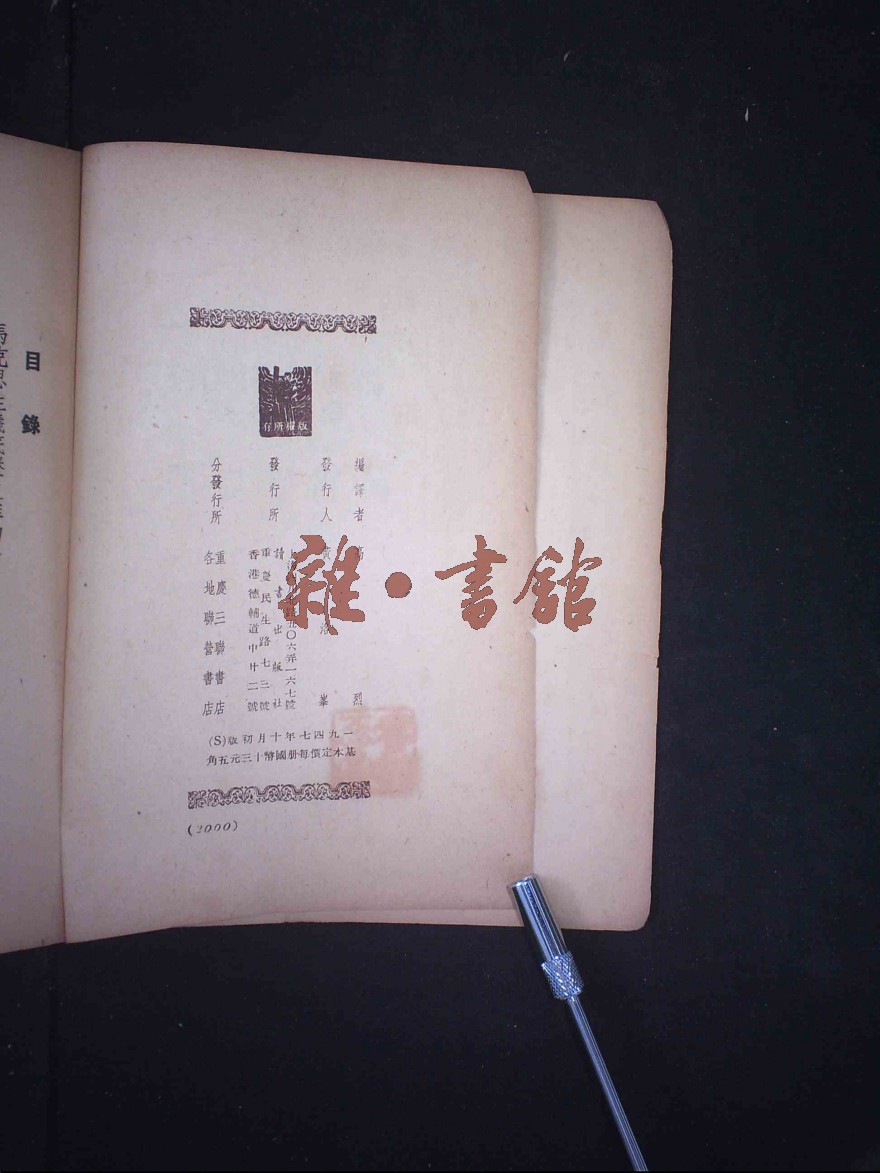 版權所有
編譯者 高 烈
發行人 黃洛峯
發行所 讀書出版社
六弄一六七號
重慶民生路七三號
香港德輔道中廿二號
分發行所 重慶三聯書店
各地聯營書店
一九四七年十月初版(S)
基本定價每册國幣十三元五角
(2000)
目錄
雜·書館